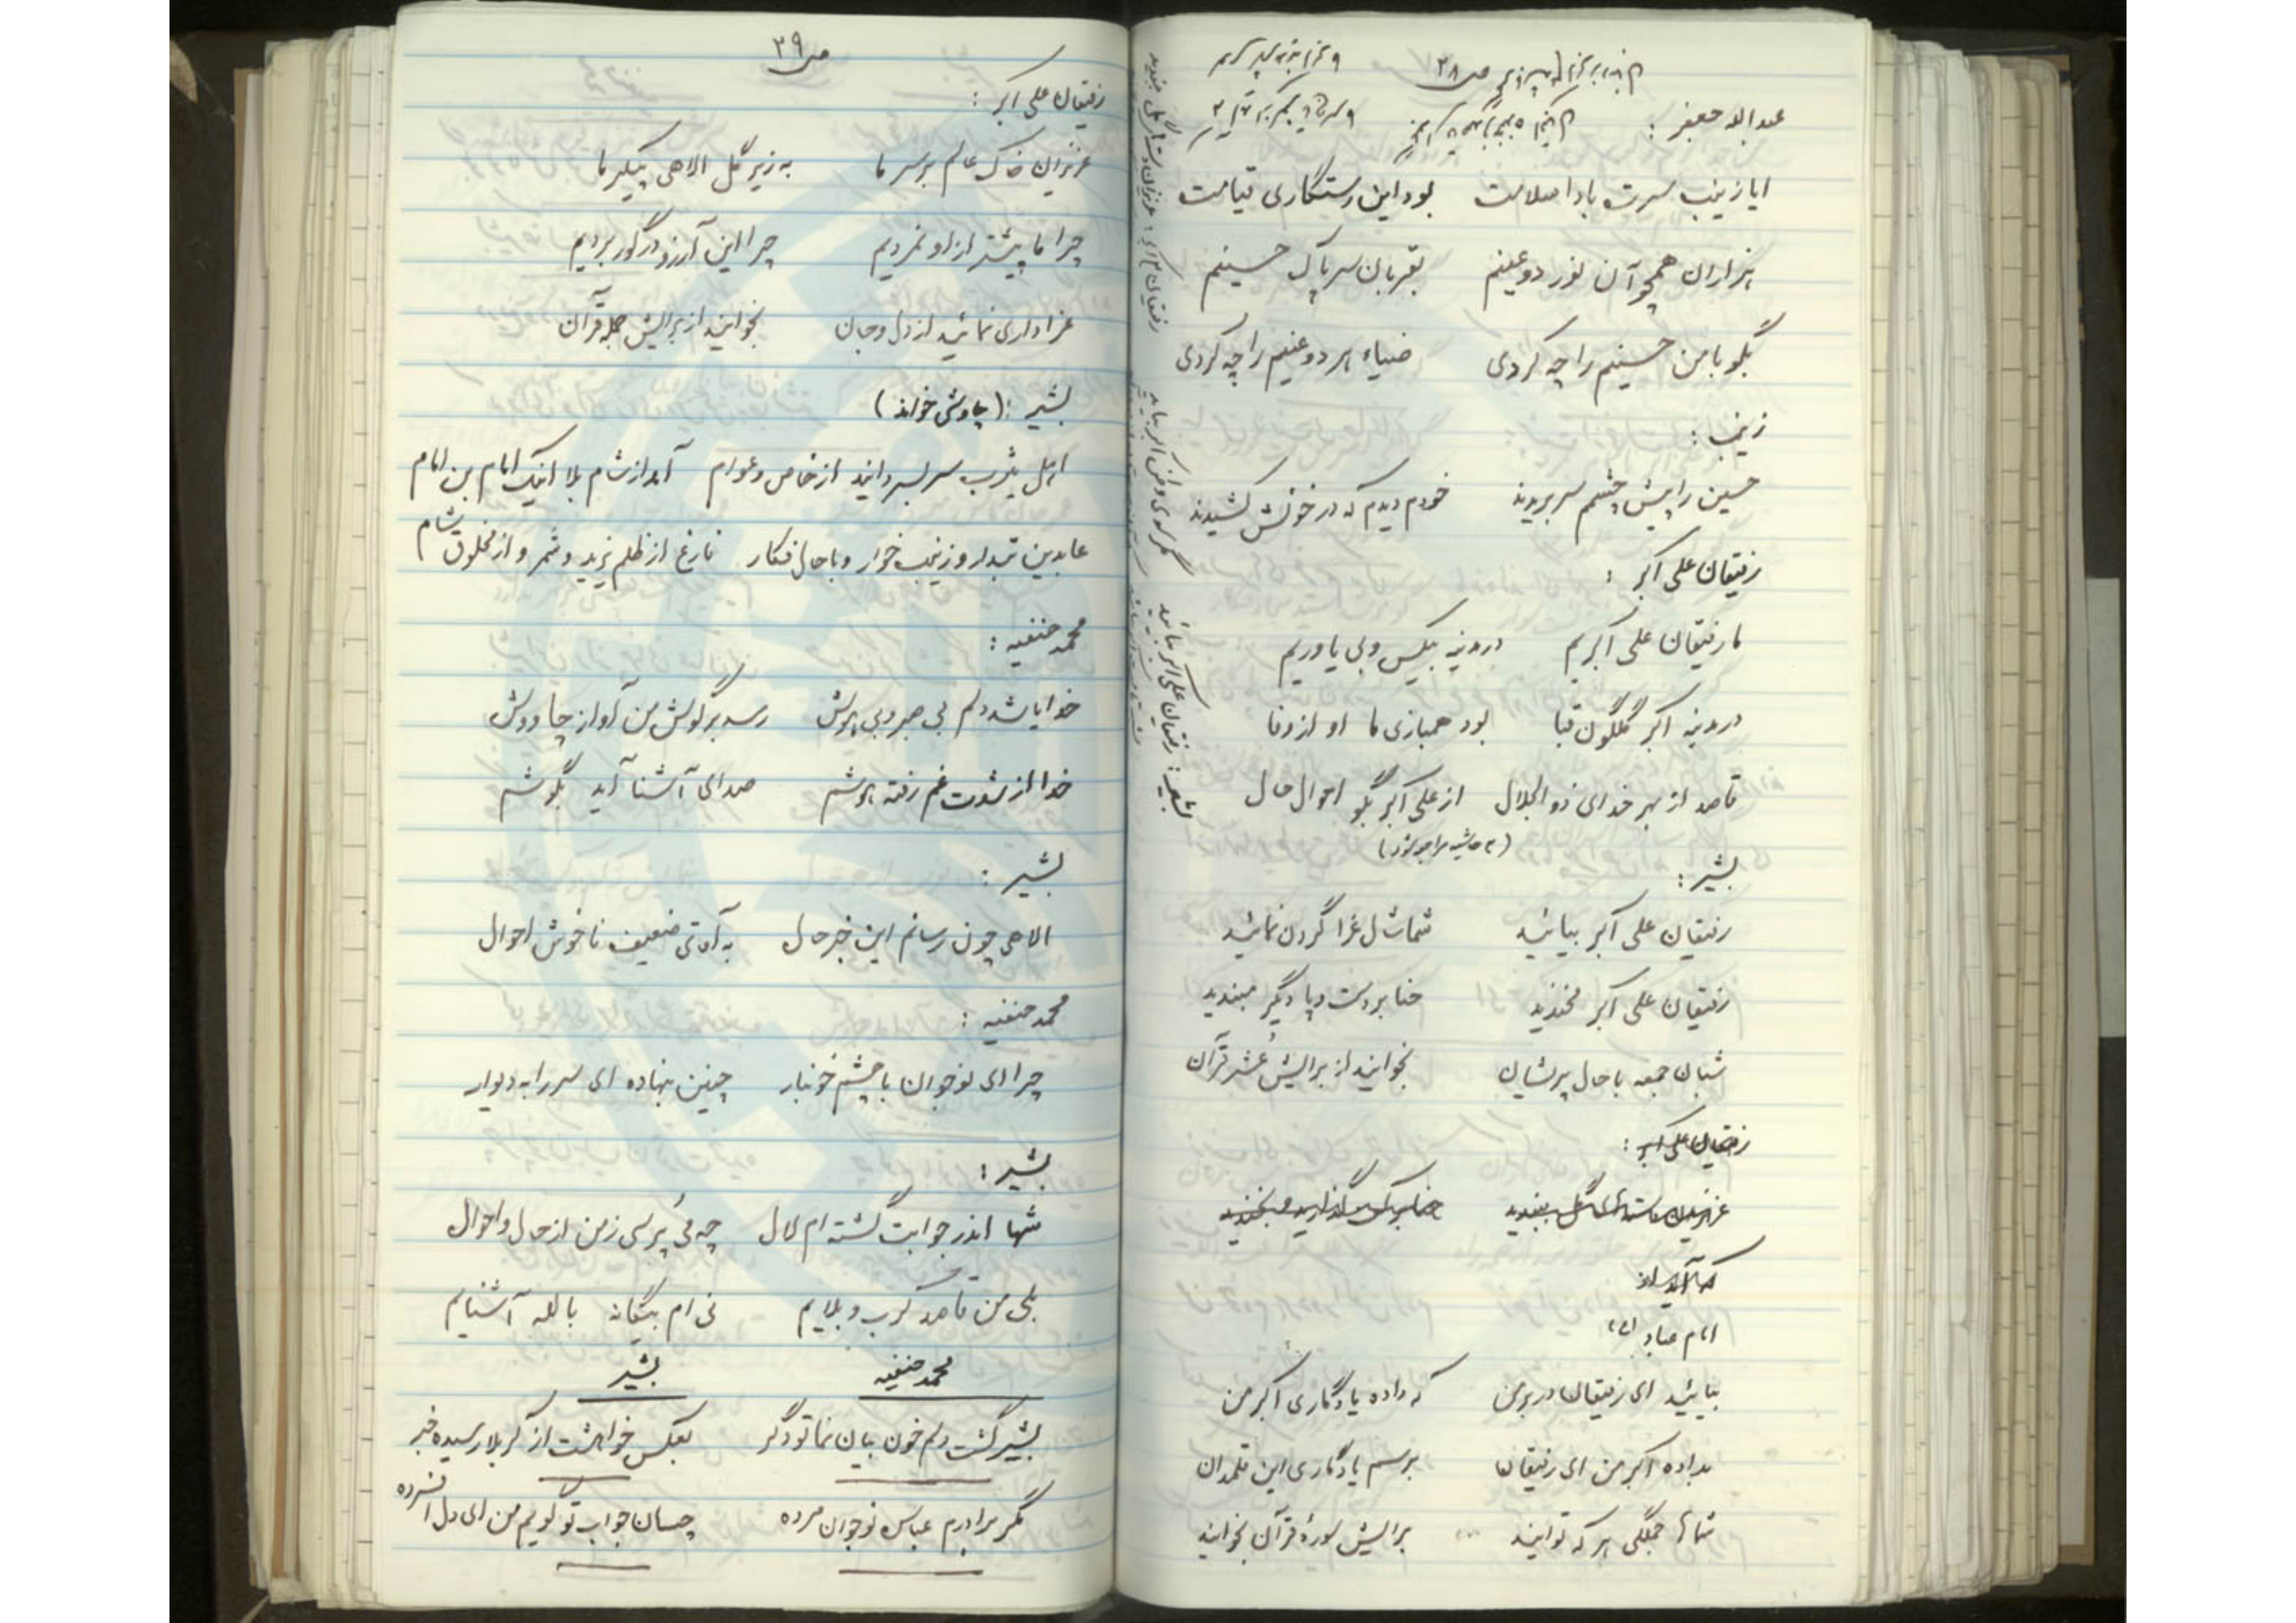 ص ۳۸
عبدالله جعفر :
ایا زینب سرت بادا سلامت    بود این رستگاری قیامت
هزاران همچو آن نور دو عینم    بقربان سر پاک حسینم
بگو با من حسینم را چه کردی    ضیاء هر دو عینم را چه کردی
زینب :
حسین را پیش چشمم سر بریدند    خودم دیدم که در خونش کشیدند
رفیقان علی اکبر :
ما رفیقان علی اکبریم    در مدینه بیکس و بی یاوریم
در مدینه اکبر گلگون قبا    بود همبازی ما او از وفا
قاصد از بهر خدای ذوالجلال    از علی اکبر بگو احوال حال
بشیر :
رفیقان علی اکبر بیائید    شماشال عزا گردن نمائید
رفیقان علی اکبر نخندید    حنا بر دست و پا دیگر مبندید
شبان جمعه با حال پریشان    بخوانید از برایش عُشر قرآن
رفیقان علی اکبر :
امام عباد (ع)
بیائید ای رفیقان در بر من    که داده یادگاری اکبر من
بداده اکبر من ای رفیقان    برسم یادگاری این قلمدان
شماها جملگی هر که توانید    برایش سوره قرآن بخوانید
بشیر : رفیقان علی اکبر بیائید
ص ۳۹
رفیقان علی اکبر :
عزیزان خاک عالم بر سر ما    به زیر گل الاهی پیکر ما
چرا ما پیشتر از او نمردیم    چرا این آرزو در گور بردیم
عزاداری نمائید از دل و جان    بخوانید از برایش جمله قرآن
بشیر : (چاوشی خواند)
اهل یثرب سر بسر دانید از خاص و عوام    آمد از شام بلا اینک امام بن امام
عابدین تبدار و زینب خوار و با حال فکار    فارغ از ظلم یزید و شمر و از مخلوق شام
محمد حنفیه :
خدایا شد دلم بی صبر و بی هوش    رسد بر گوش من آواز چاووش
خدا از شدت غم رفته هوشم    صدای آشنا آید بگوشم
بشیر :
الاهی چون رسانم این خبر حال    به آقای ضعیف ناخوش احوال
محمد حنفیه :
چرا ای نوجوان با چشم خونبار    چنین بنهاده ای سر را به دیوار
بشیر :
شها اندر جوابت گشته ام لال    چه می پُرسی ز من از حال و احوال
بلی من قاصد کرب و بلایم    نی ام بیگانه بالله آشنایم
محمد حنفیه    بشیر
بشیر گشت دلم خون بیان نما تو دگر    بعکس خواهشت از کربلا رسیده خبر
مگر برادرم عباس نوجوان مرده    چسان جواب تو گویم من ای دل افسرده